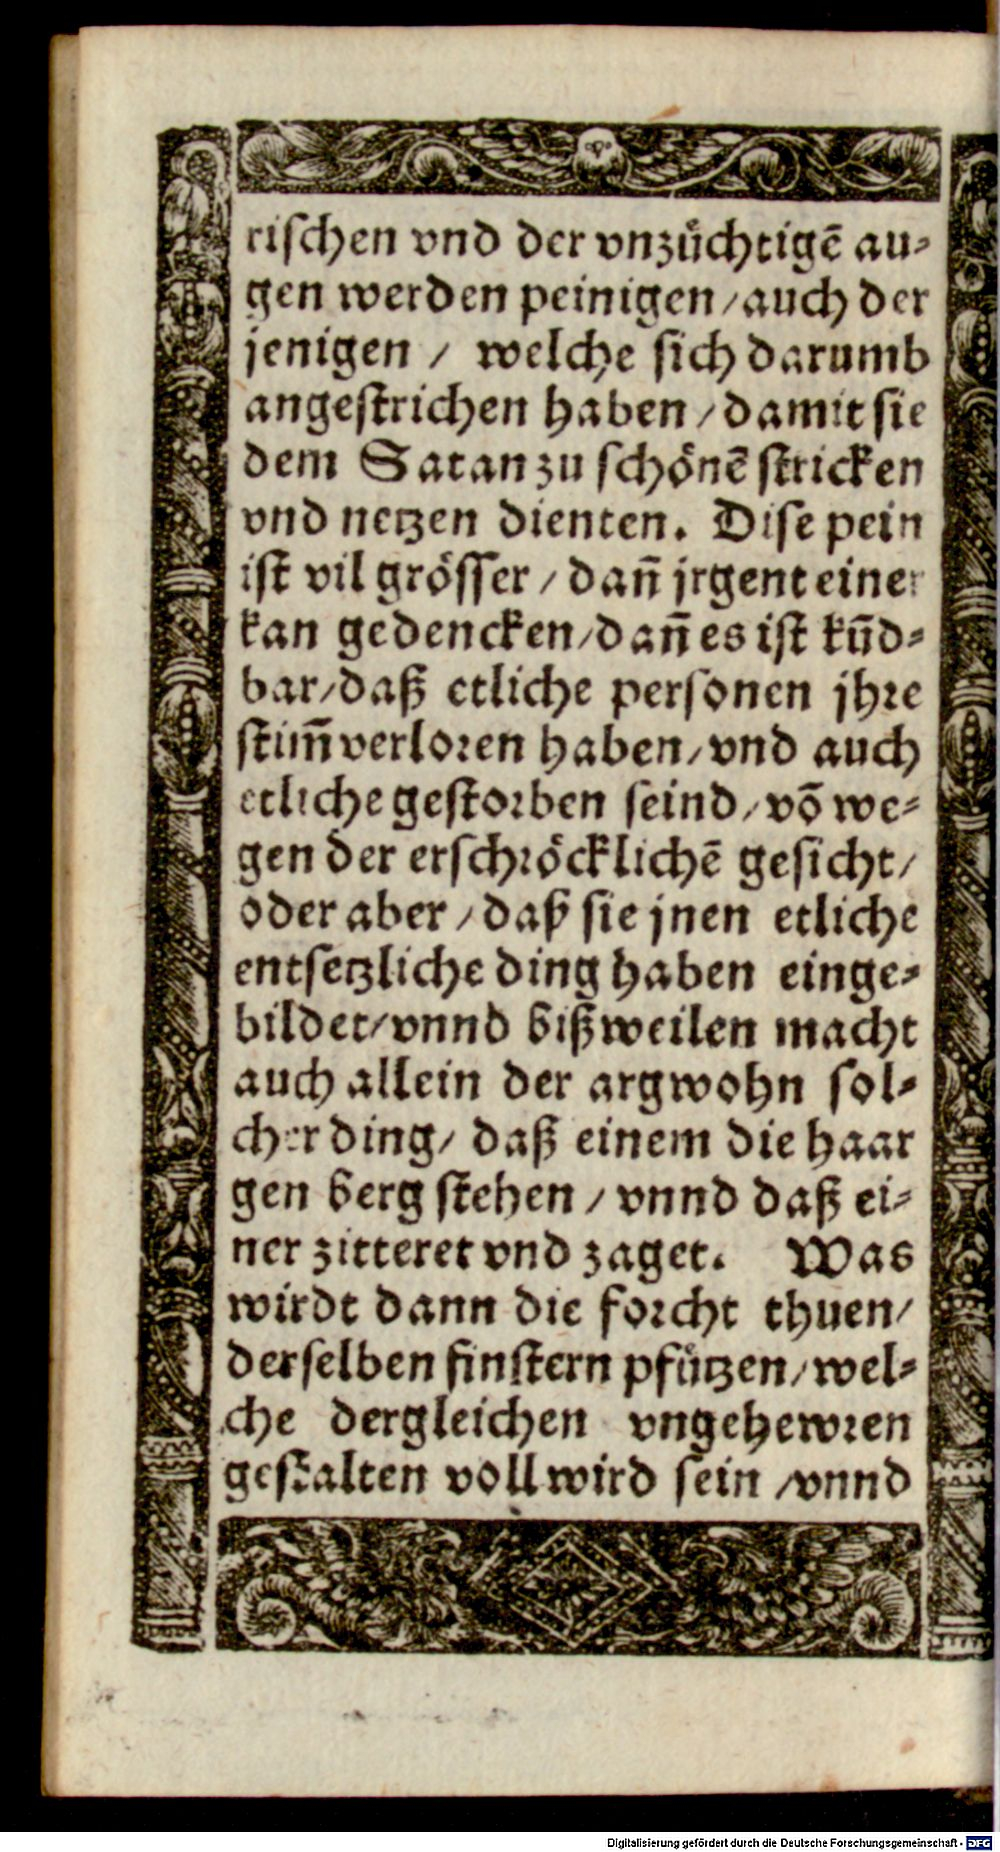 rischen vnd der vnzüchtigē au⸗
gen werden peinigen/auch der
jenigen / welche sich darumb
angestrichen haben/damit sie
dem Satan zu schönē stricken
vnd netzen dienten. Dise pein
ist vil grösser/dañ jrgent einer
kan gedencken/dañ es ist kūd⸗
bar/daß etliche personen jhre
stim̄ verloren haben/vnd auch
etliche gestorben seind/võ we⸗
gen der erschröcklichē gesicht/
oder aber/daß sie jnen etliche
entsetzliche ding haben einge⸗
bildet/vnnd bißweilen macht
auch allein der argwohn sol⸗
cher ding/ daß einem die haar
gen berg stehen/vnnd daß ei⸗
ner zitteret vnd zaget. Was
wirdt dann die forcht thuen/
derselben finstern pfützen/wel⸗
che dergleichen vngehewren
gestalten voll wird sein /vnnd
Digitalisierung gefördert durch die Deutsche Forschungsgemeinschaft - DFG